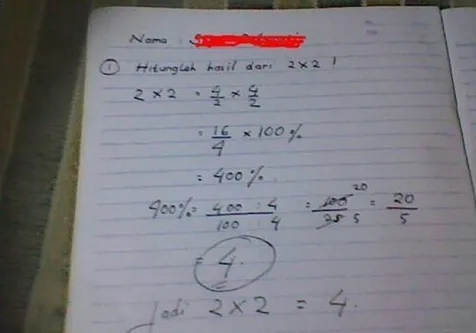 Nama :
① Hitunglah hasil dari 2 x 2 !
2 x 2 = 4/2 x 4/2
= 16/4 x 100%
= 400%
400% = 400 : 4 / 100 : 4 = 100 20 / 25 5 = 20/5
= 4.
Jadi 2 x 2 = 4.